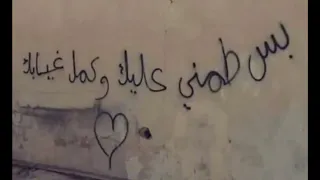 بس طمني عليك وكمل غيابك